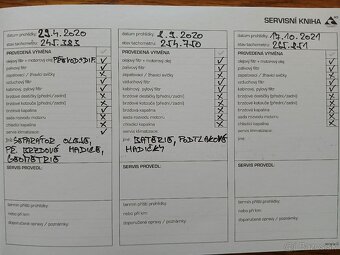 SERVISNÍ KNIHA
datum prohlídky: 29.4.2020
stav tachometru: 245.383
PROVEDENÁ VÝMĚNA
olejový filtr + motorový olej
palivový filtr
zapalovací / žhavicí svíčky
vzduchový filtr
kabinový, pylový filtr
brzdové destičky (přední/zadní)
brzdové kotouče (přední/zadní)
brzdová kapalina
sada rozvodu motoru
chladicí kapalina
servis klimatizace
jiné: SEPARÁTOR OLEJE,
PE. BRZDOVÉ HADICE,
GEOMETRIE
SERVIS PROVEDL:
termín příští prohlídky:
nebo při km:
doporučení opravy / poznámky:
datum prohlídky: 2.9.2020
stav tachometru: 254.750
PROVEDENÁ VÝMĚNA
olejový filtr + motorový olej
palivový filtr
zapalovací / žhavicí svíčky
vzduchový filtr
kabinový, pylový filtr
brzdové destičky (přední/zadní)
brzdové kotouče (přední/zadní)
brzdová kapalina
sada rozvodu motoru
chladicí kapalina
servis klimatizace
jiné: BATERIE, PODTLAKOVÉ
HADIČKY
SERVIS PROVEDL:
termín příští prohlídky:
nebo při km:
doporučení opravy / poznámky:
datum prohlídky: 17.10.2021
stav tachometru:
PROVEDENÁ VÝMĚNA
olejový filtr + motorový olej
palivový filtr
zapalovací / žhavicí svíčky
vzduchový filtr
kabinový, pylový filtr
brzdové destičky (přední/zadní)
brzdové kotouče (přední/zadní)
brzdová kapalina
sada rozvodu motoru
chladicí kapalina
servis klimatizace
jiné:
SERVIS PROVEDL:
termín příští prohlídky:
nebo při km:
doporučení opravy / poznámky: